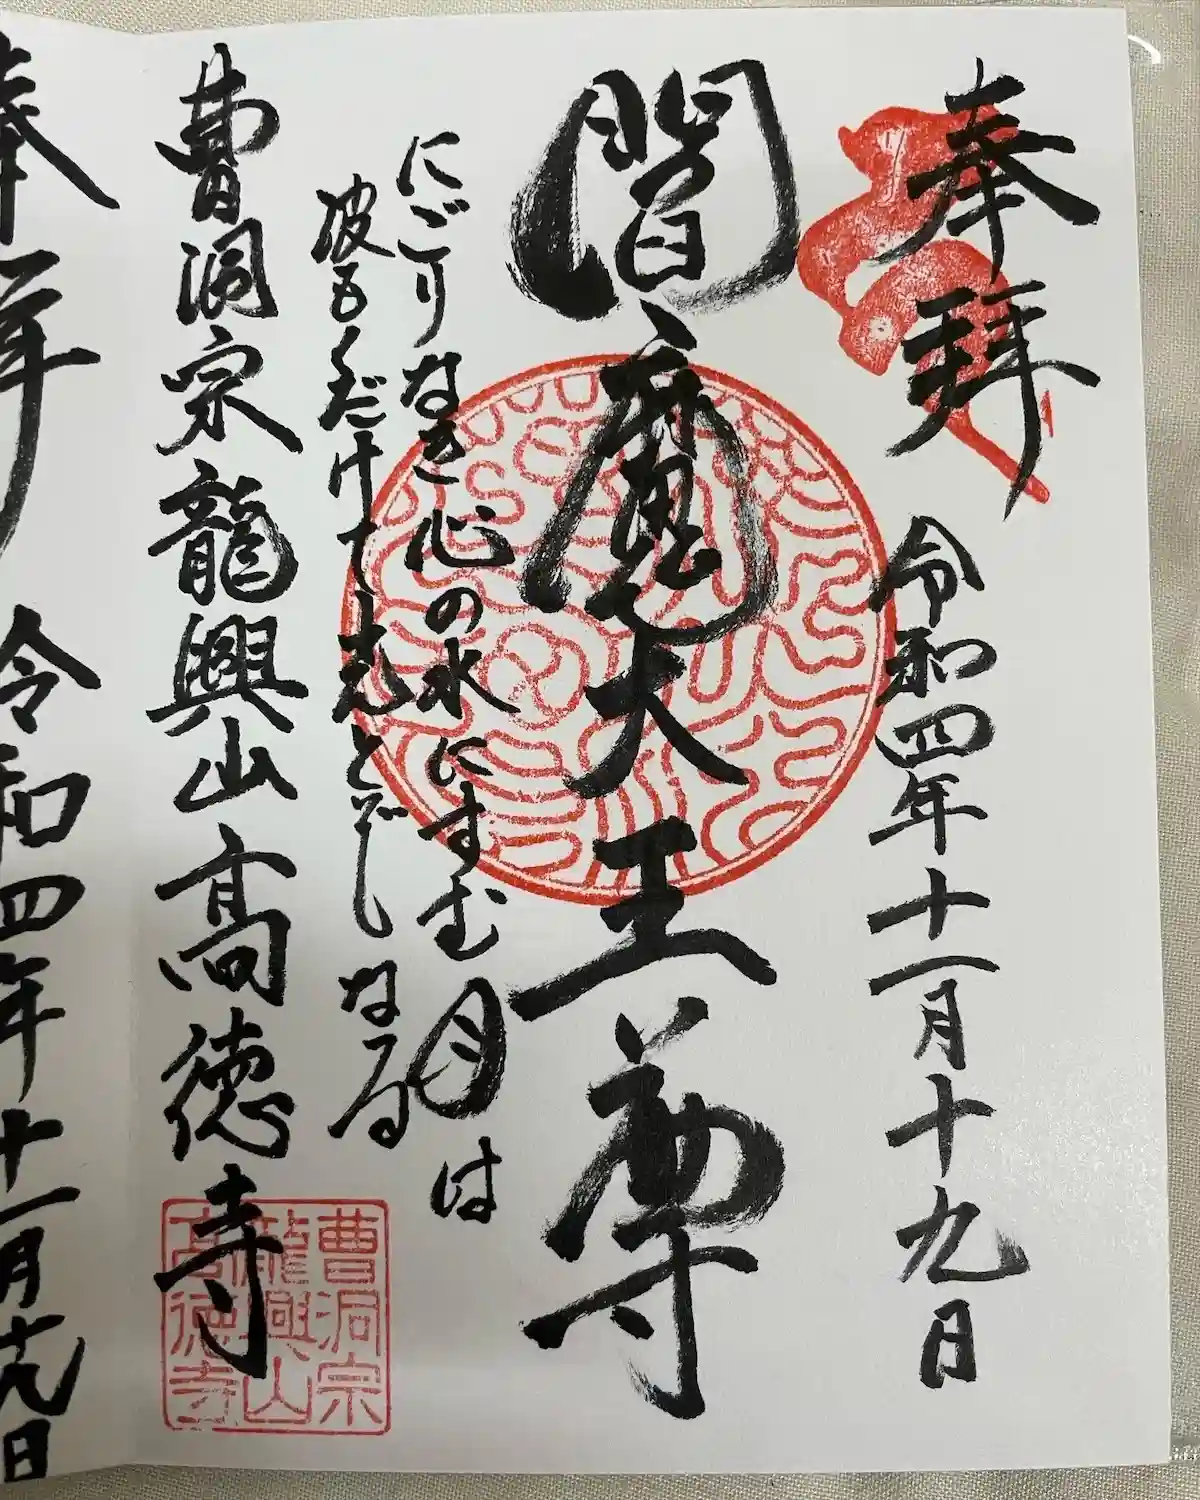 奉拝 令和四年十一月十九日
閻魔大王尊
にごりなき心の水にすむ月は
波もくだけて光とぞなる
曹洞宗龍興山高徳寺
曹洞宗
龍興山
高徳寺
奉拝 令和四年十一月十九日